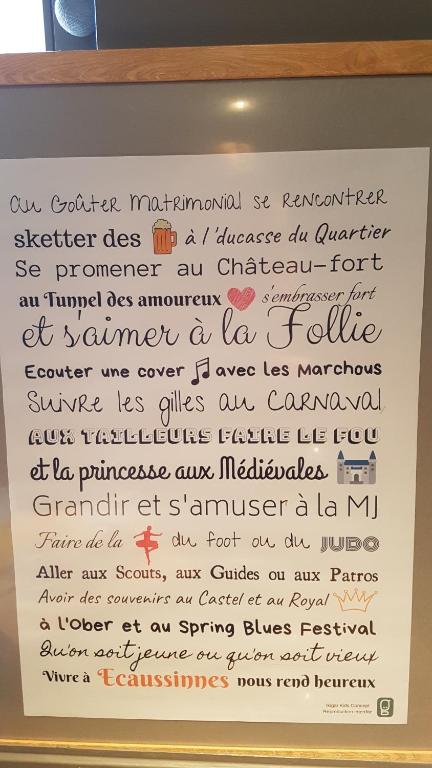 au Goûter Matrimonial se rencontrer
sketter des à l'ducasse du Quartier
Se promener au Château-fort
au Tunnel des amoureux s'embrasser fort
et s'aimer à la Follie
Ecouter une cover avec les Marchous
Suivre les gilles au Carnaval
AUX TAILLEURS FAIRE LE FOU
et la princesse aux Médiévales
Grandir et s'amuser à la MJ
Faire de la du foot ou du JUDO
Aller aux Scouts, aux Guides ou aux Patros
Avoir des souvenirs au Castel et au Royal
à l'Ober et au Spring Blues Festival
Qu'on soit jeune ou qu'on soit vieux
Vivre à Ecaussinnes nous rend heureux
Kids Concept
Reproduction interdite